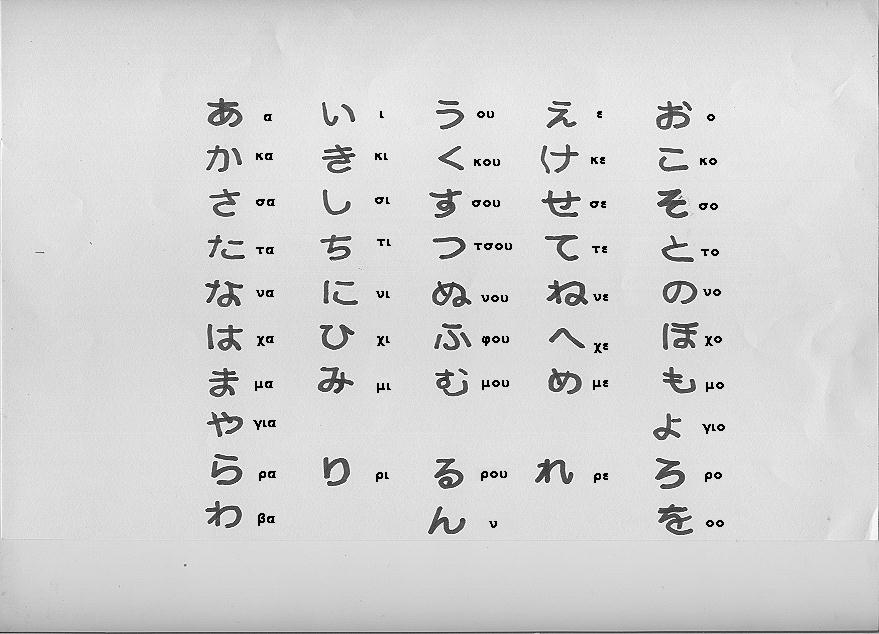 あ α い ι う ου え ε お ο
か κα き κι く κου け κε こ κο
さ σα し σι す σου せ σε そ σο
た τα ち τι つ τσου て τε と το
な να に νι ぬ νου ね νε の νο
は χα ひ χι ふ φου へ χε ほ χο
ま μα み μι む μου め με も μο
や για よ γιο
ら ρα り ρι る ρου れ ρε ろ ρο
わ βα ん ν を οο